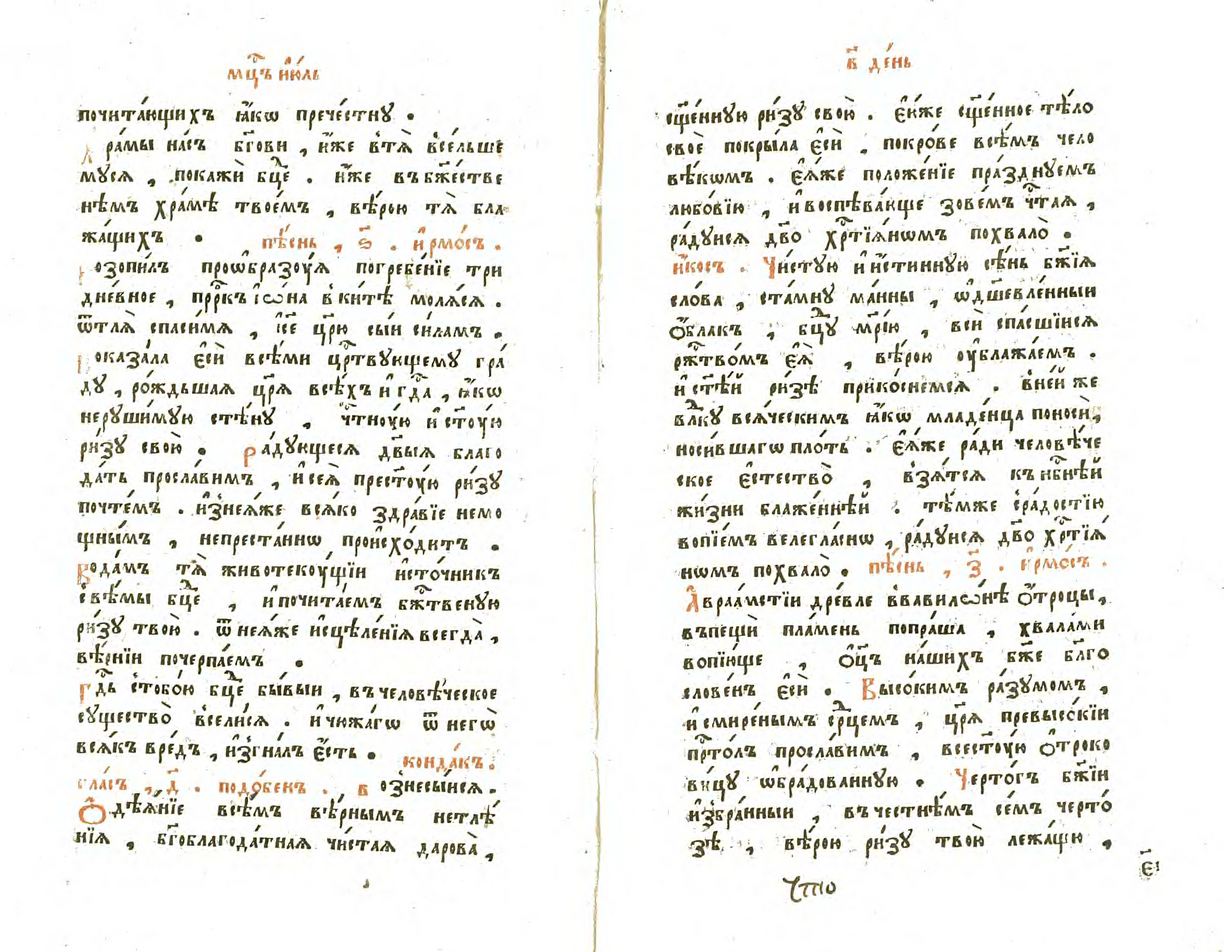 мц҃ъ ію́ль
почита́ющихъ ꙗ҆́кѡ пречⷭ҇тну .
Храмы на́съ бг҃ови , и҆́же втѧ̀ все́льше
мꙋсѧ , покажѝ бцⷣе . и҆́же въ бж҃естве
нѣ́мъ хра́мѣ твое́мъ , вѣ́рою тѧ̀ бла
жа́щихъ . пѣ́снь , ѕ҃ . і҆рмо́съ .
Возопи́лъ проѡбразꙋ́ѧ погребе́нїе три
дне́вное , прⷪ҇ркъ і҆ѡ́на в ки́тѣ молѧ́сѧ .
ѿ тлѧ̀ спаси́мѧ , і҆с҃е цр҃ю сы́и си́ламъ .
Показа́ла є҆сѝ все́ми црⷭ҇твꙋющемꙋ гра́
дꙋ , ро́ждьшаѧ цр҃ѧ всѣ́хъ и гдⷭ҇а , ꙗ҆́кѡ
нерꙋши́мꙋю стѣ́нꙋ , чⷭ҇тнꙋю и҆ ст҃ꙋю
ри́зꙋ свою̀ . Ра́дꙋющесѧ дв҃ыѧ благо
да́ть просла́вимъ , и҆ сеѧ̀ прест҃ꙋю ри́зꙋ
почте́мъ . и҆з̾ неѧ́же всѧ́ко здра́вїе немо
щны́мъ , непреста́ннѡ происхо́дитъ .
Вода́мъ тѧ̀ животекꙋ́щїи и҆сто́чникъ
свѣ́мы бцⷣе , и҆ почита́емъ бжⷭ҇твенꙋю
ри́зꙋ твою̀ . ѿ неѧ́же и҆сцѣле́нїѧ всегда̀ ,
вѣ́рнїи почерпа́емъ .
Гдⷭ҇ь с тобо́ю бцⷣе бы́выи , въ человѣ́ческое
сꙋщество̀ всели́сѧ . и҆ чюжа́гѡ ѿ него̀
всѧ́къ вре́дъ , и҆згна́лъ є҆́сть . конда́къ .
гла́съ , д҃ . подо́бенъ . вознесы́исѧ .
Ѻ҆дѣѧ́нїе всѣ́мъ вѣ́рнымъ нетлѣ́
нїѧ , бг҃облагода́тнаѧ чи́стаѧ дарова̀ ,
в҃ де́нь
сщ҃е́ннꙋю ри́зꙋ свою̀ . є҆́юже сщ҃е́нное тѣ́ло
своѐ покры́ла є҆сѝ , покро́ве всѣ́мъ чело
вѣ́кѡмъ . є҆ѧ́же положе́нїе пра́зднꙋемъ
любо́вїю , и҆ воспѣва́юще зове́мъ чⷭ҇таѧ ,
ра́дꙋисѧ дв҃о хрⷭ҇тїѧ́нѡмъ похвало̀ .
и҆́косъ . Чи́стꙋю и҆ и҆́стиннꙋю сѣ́нь бж҃їѧ
сло́ва , ста́мнꙋ ма́нны , ѡ҆дꙋшевле́нныи
ѻ҆́блакъ , бцⷣꙋ мр҃і́ю , всѝ спа́сшїисѧ
ржⷭ҇тво́мъ є҆ѧ̀ , вѣ́рою ᲂу҆блажа́емъ .
и҆ ст҃ѣ́й ри́зѣ прикосне́мсѧ . в не́й же
влⷣкꙋ всѧ́ческимъ ꙗ҆́кѡ младе́нца поносѝ ,
носи́вшагѡ пло́ть . є҆ѧ́же ра́ди человѣ́че
ское є҆стество̀ , взѧ́тсѧ къ нбⷭ҇нѣ́й
жи́зни блаже́ннѣй . тѣ́мже с ра́достїю
вопїе́мъ велегла́снѡ , ра́дꙋисѧ дв҃о хрⷭ҇тїѧ́
нѡмъ похвало̀ . пѣ́снь , з҃ . і҆рмо́съ .
А҆враа́мстїи дре́вле в вавилѡ́нѣ ѻ҆́троцы ,
въ пещѝ пла́мень попра́ша , хвала́ми
вопїю́ще , ѻ҆ц҃ъ на́шихъ бж҃е блг҃о
слове́нъ є҆сѝ . Высо́кимъ ра́зꙋмомъ ,
и҆ смире́нымъ срⷣцемъ , цр҃ѧ превы́сокїи
прⷭ҇то́лъ просла́вимъ , всест҃ꙋю ѻ҆троко
ви́цꙋ ѡ҆бра́дованнꙋю . Черто́гъ бж҃їи
и҆збра́нныи , въ честнѣ́мъ се́мъ черто́
зѣ , вѣ́рою ри́зꙋ твою̀ лежа́щю ,
є҃і